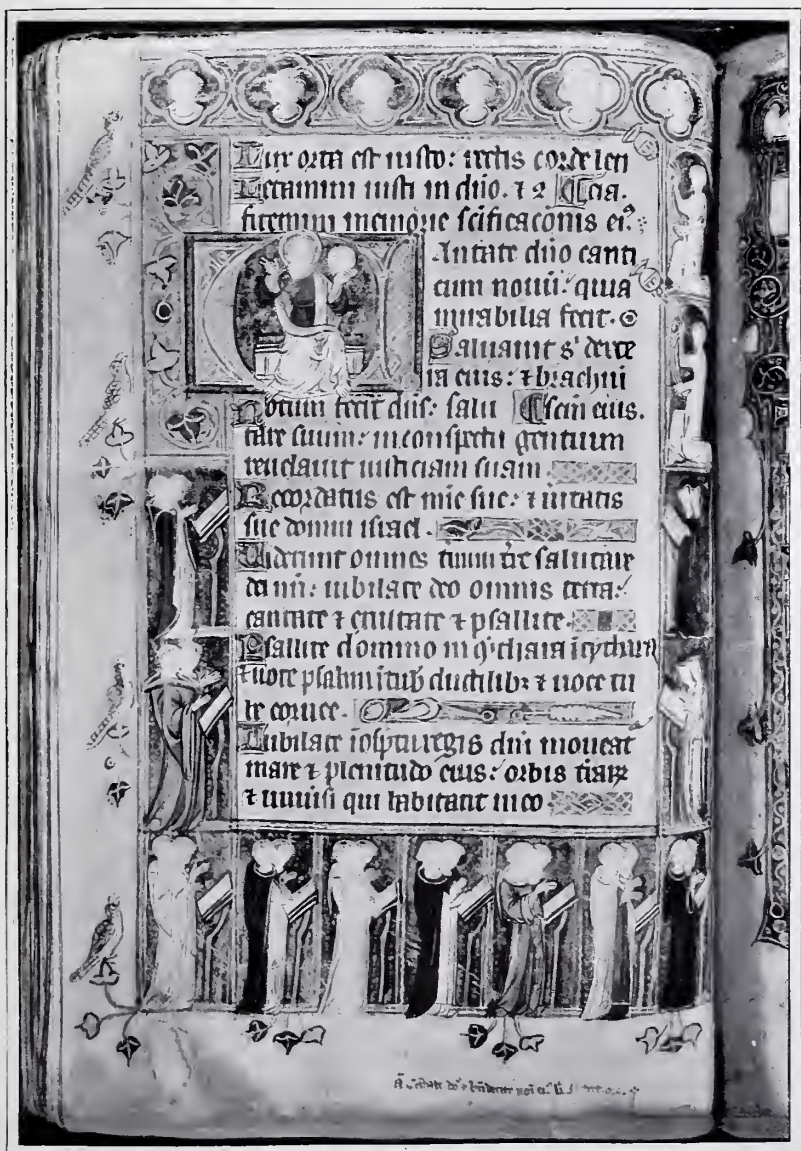 Lux orta est iusto: rectis corde leti
Letamini iusti in dño. ⁊ ꝯ cia.
fitemini memorie sc̃ificac̃onis eiꝰ
Antate dño canti
cum nouũ: quia
mirabilia fecit.
Saluauit s' dexte
ra eius: ⁊ brachiũ
Notum fecit dñs: salu sc̃m eius.
tare suum: in conspectu gentium
reuelauit iusticiam suam
Recordatus est mie sue: ⁊ uitatis
sue domui israel.
Uiderunt omnes t̃mini t̃re salutare
dei nr̃i: iubilate deo omnis terra:
cantate ⁊ exultate ⁊ psallite
Psallite domino in cythara
⁊ uoce psalmi tub̃ ductilibꝫ ⁊ uoce tu
be cornee.
Iubilate regis dñi moueat
mare ⁊ plenitudo eius: orbis t̃raꝝ
⁊ uniuisi qui habitant in eo